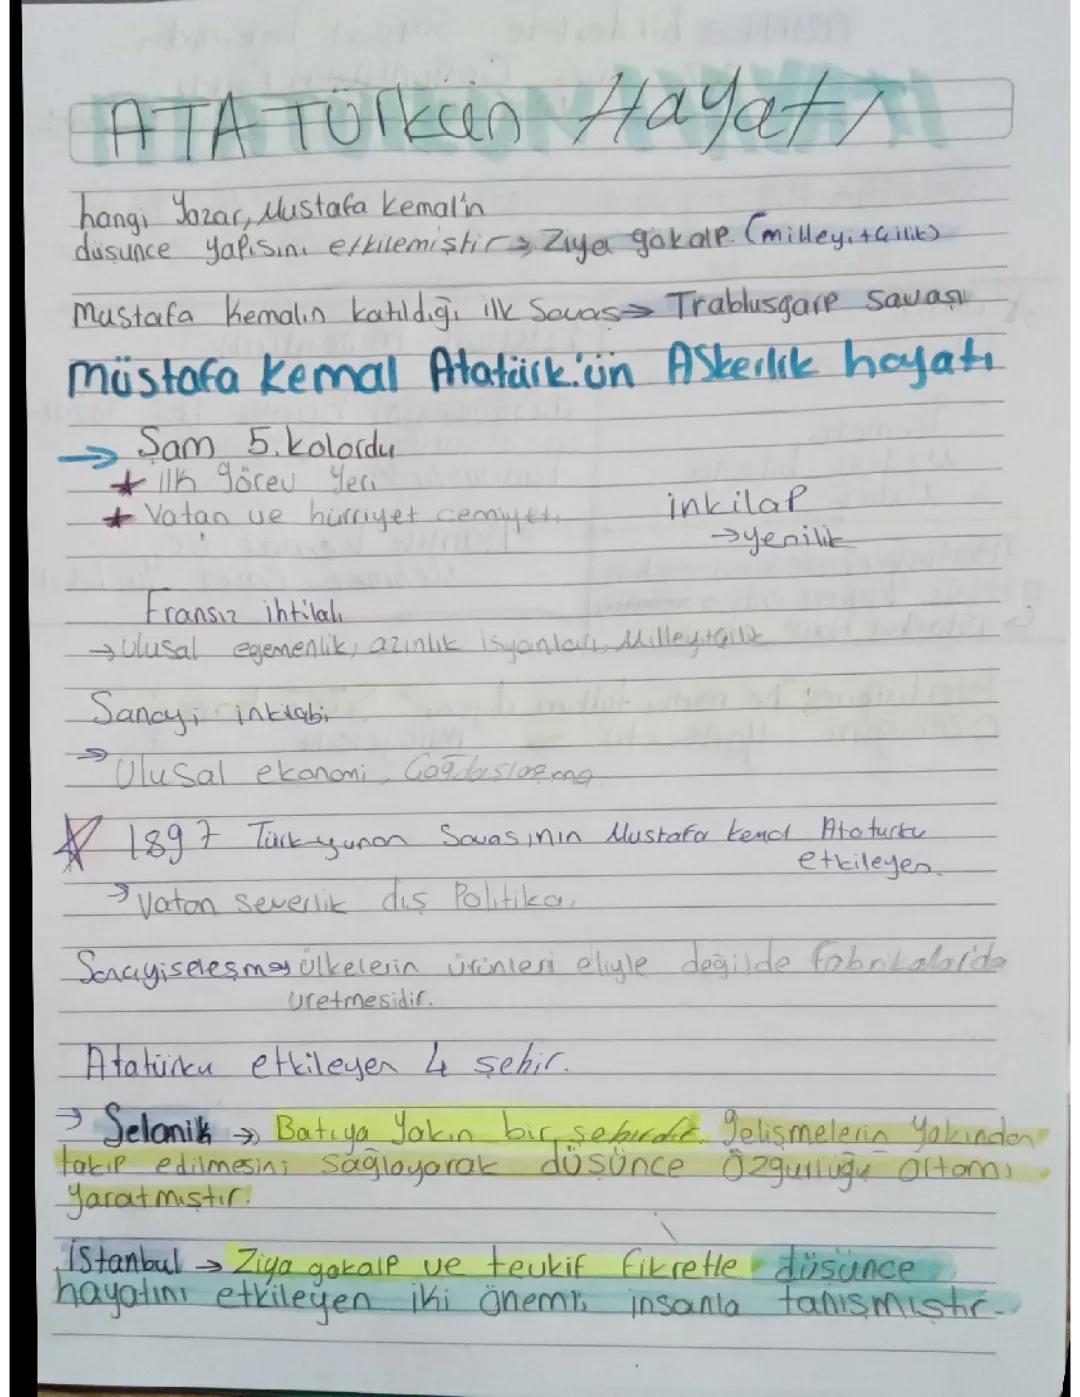 ATATÜrkün Hayatı
hangi Yazar, Mustafa Kemal'in
düşünce yapısını etkilemiştir → Ziya gökalp. (milleyitçilik)
Mustafa Kemalin katıldığı ilk Savaş → Trablusgarp savaşı
Müstafa Kemal Atatürk'ün ASkerlik hayatı
→ Şam 5. kolordu
★ ilk görev Yeri
★ Vatan ve hürriyet cemiyeti
inkilap
→ yenilik
Fransız ihtilalı
→ Ulusal egemenlik, azınlık isyanları, Milleyitçilik
Sanayi inkılabı
→ Ulusal ekonomi, Çağdaşlaşma
★ 1897 Türk yunan Savaşının Mustafa kemal Atatürkü
etkileyen
→ Vatan severlik dış Politika.
Sanayiseleşme → ülkelerin ürünleri eliyle değilde fabrikalarda
üretmesidir.
Atatürkü etkileyen 4 şehir.
→ Selanik → Batıya Yakın bir şehirdir. Gelişmelerin Yakından
takip edilmesini sağlayarak düşünce Özgürlüğü ortamı
Yaratmıştır.
İstanbul → Ziya gökalp ve tevkif fikretle düşünce
hayatını etkileyen iki önemli insanla tanışmıştır.